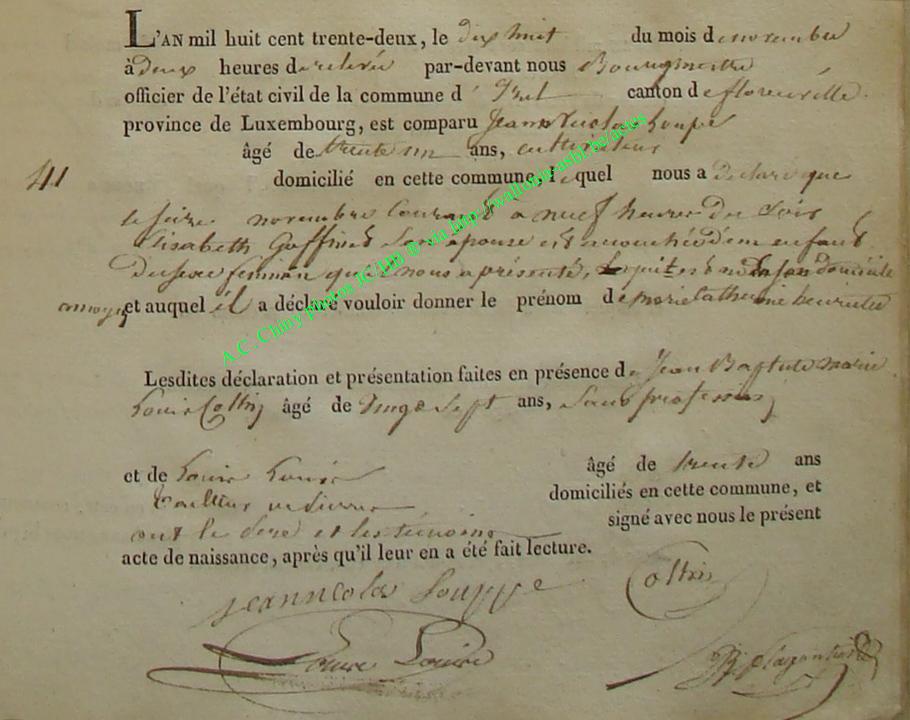 L'AN mil huit cent trente-deux, le dix huit du mois de novembre
à deux heures de relevée par-devant nous Bourgmestre
officier de l'état civil de la commune d' Izel canton de florenville
province de Luxembourg, est comparu Jean Nicolas Souppe
âgé de trente un ans, cultivateur
41
domicilié en cette commune, lequel nous a déclaré que
le seize novembre Courant a neuf heures du Soir
Elisabeth Goffinet Son epouse est accouchée d'un enfant
du sexe féminin qu'il nous a présenté, en son domicile
et auquel il a déclaré vouloir donner le prénom de marie catherine henriette
Lesdites déclaration et présentation faites en présence de Jean Baptiste marie
Louis Collin âgé de vingt sept ans, Sans profession
et de Louis âgé de trente ans
domiciliés en cette commune, et
ont le père et les témoins signé avec nous le présent
acte de naissance, après qu'il leur en a été fait lecture.
jean nicolas Souppe Collin
A.C. Chiny photos JC HB @ via http://wallonia-asbl.be/actes